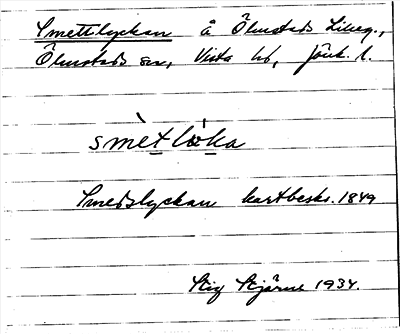 Smettlyckan å Ölmstads Lilleg.,
Ölmstads sn, Vista hd, Jönk. l.
smètlὼka
Smedslyckan kartbeskr. 1849
Stig Stjärne 1934.